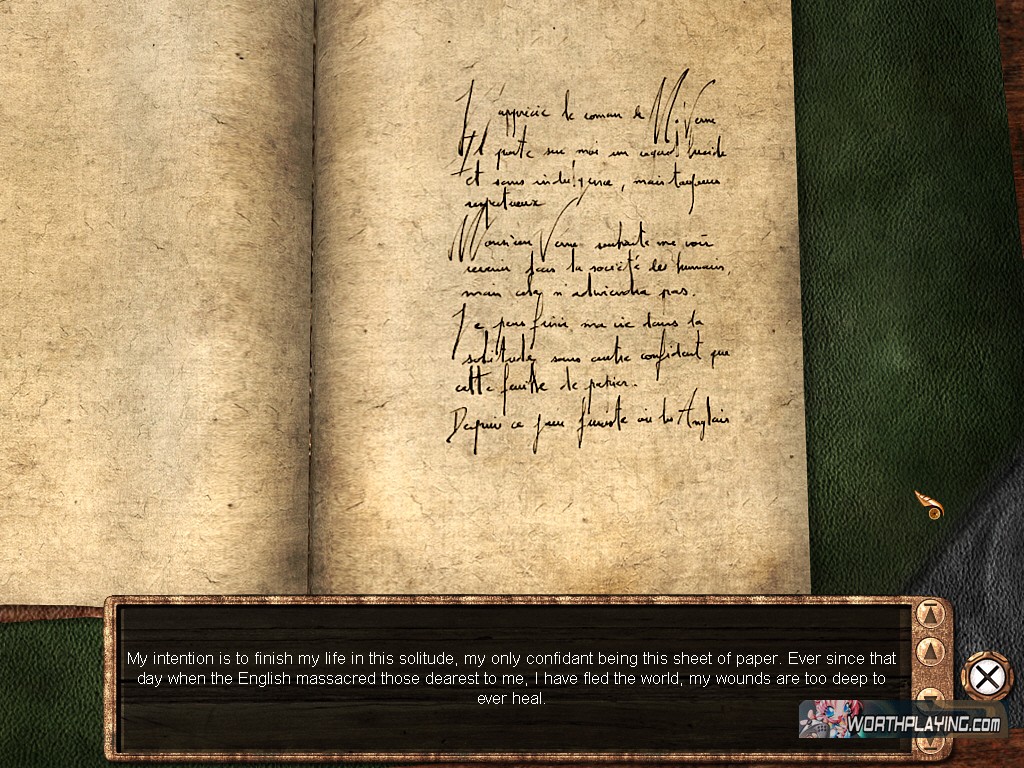 J'apprécie le roman de M. Verne
Il porte sur moi un regard lucide
et sans indulgence, mais toujours
respectueux
Monsieur Verne souhaite me voir
revenir dans la société des humains,
mais cela n'adviendra pas.
Je peux finir ma vie dans la
solitude, sans autre confident que
cette feuille de papier.
Depuis ce jour funeste où les Anglais
My intention is to finish my life in this solitude, my only confidant being this sheet of paper. Ever since that
day when the English massacred those dearest to me, I have fled the world, my wounds are too deep to
ever heal.
WORTHPLAYING.COM